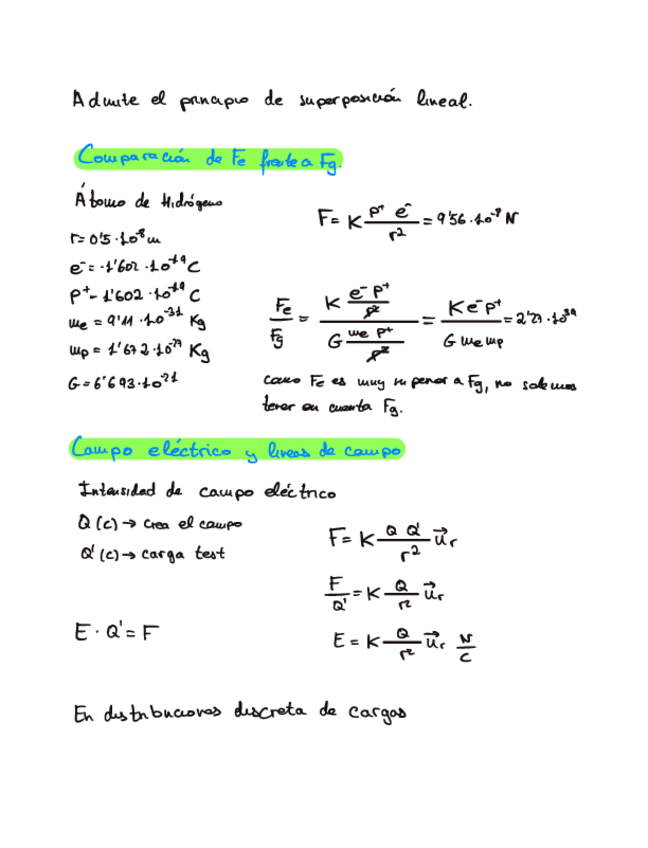 Admite el principio de superposición lineal.
Comparación de Fe frente a Fg.
Átomo de Hidrógeno
r= 0'5·10⁻⁸m
e⁻= -1'602 ·10⁻¹⁹C
p⁺- 1'602 ·10⁻¹⁹ C
me = 9'11 ·10⁻³¹ Kg
mp = 1'672·10⁻²⁷ Kg
F= K p⁺ e⁻ / r² = 9'56·10⁻⁸ N
Fe / Fg = K e⁻ p⁺ / r² / G me p⁺ / r² = K e⁻ p⁺ / G me mp = 2'27 ·10³⁹
como Fe es muy superior a Fg, no solemos
tener en cuenta Fg.
Campo eléctrico y lineas de campo
Intensidad de campo eléctrico
Q (c) → crea el campo
Q' (c) → carga test
F= K Q Q' / r² u⃗r
F / Q' = K Q / r² u⃗r
E · Q' = F
E = K Q / r² u⃗r N / C
En distribuciones discreta de cargas